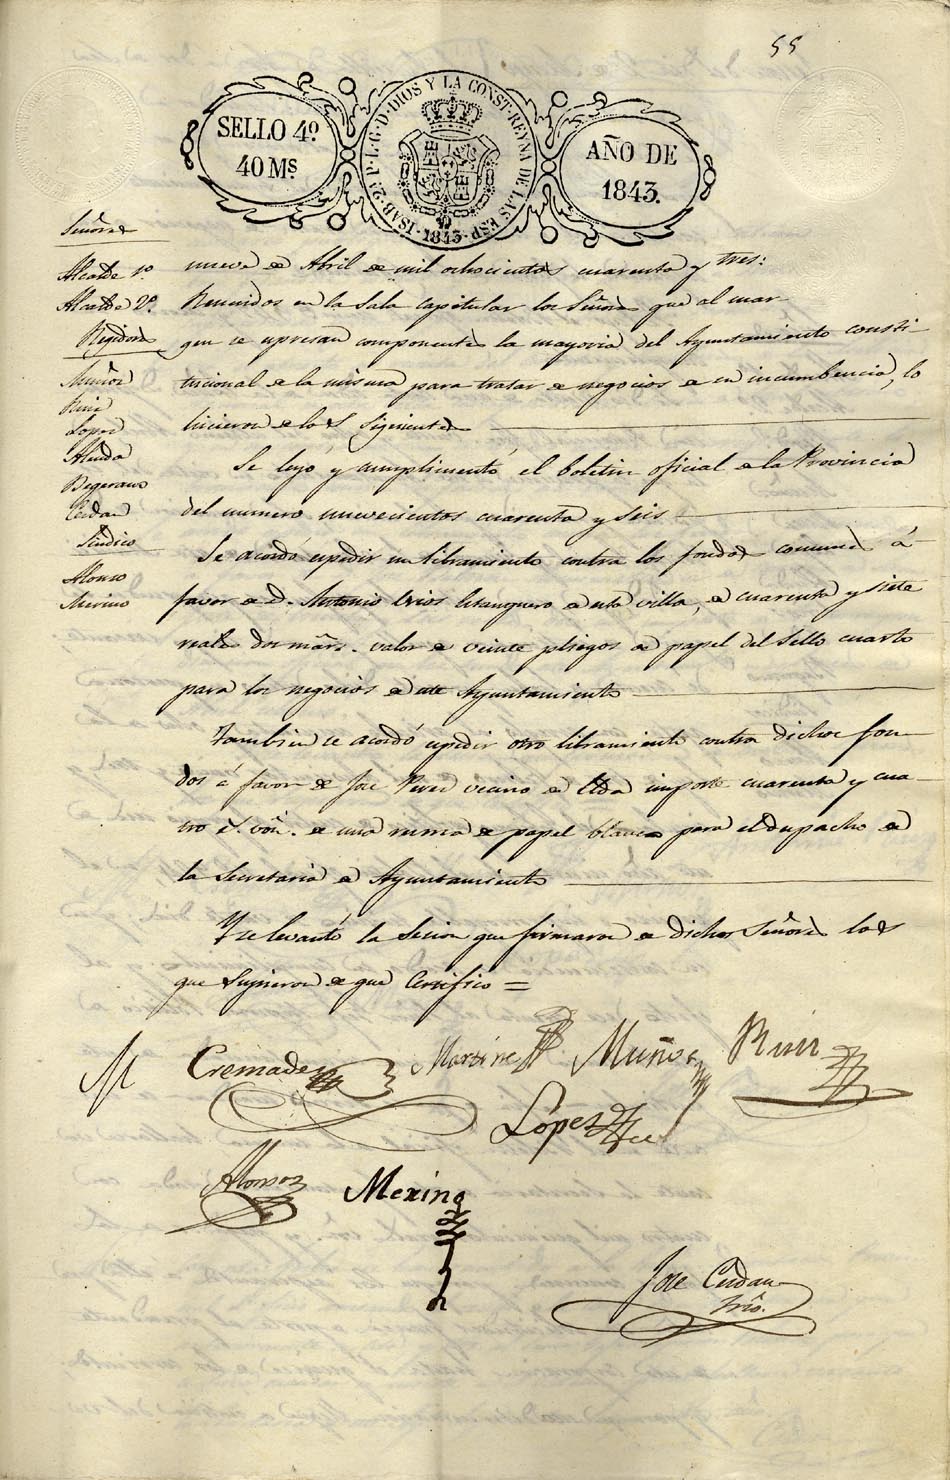 55
SELLO 4º.
40 Mˢ
ISAB. 2ª P. L. G. D. DIOS Y LA CONST. REYNA DE LAS ESP.
1843
AÑO DE
1843.
Señores
Alcalde 1º.
Alcalde 2º.
Regidores
Muñoz
Ruiz
Lopez
Bejerano
Cerdan
Sindico
Alonso
Merino
nueve de Abril de mil ochocientos cuarenta y tres:
Reunidos en la Sala Capitular los Señores que al mar-
gen se espresan componentes la mayoria del Ayuntamiento consti-
tucional de la misma para tratar de negocios de su incumbencia, lo
hicieron de los siguientes
Se leyó y cumplimentó el boletin oficial de la Provincia
del numero nuevecientos cuarenta y seis
Se acordó espedir un libramiento contra los fondos comunes á
favor de D. Antonio Estanquero de esta villa, de cuarenta y siete
reales dos mars. valor de veinte pliegos de papel del Sello cuarto
para los negocios de este Ayuntamiento
Tambien se acordó espedir otro libramiento contra dichos fon-
dos á favor de José Perez vecino de Elda importe cuarenta y cua-
tro r.s von. de una resma de papel blanco para el despacho de
la Secretaria de Ayuntamiento
Y se levantó la Secion que firmaron de dichos Señores los
que supieron de que Certifico =
M
Cremades
Martinez
Muñoz
Ruiz
Lopez
Alonso
Merino
Jose Cerdan
Srio.